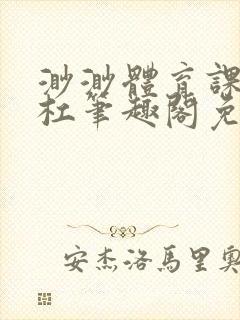 渺渺體育課
杜筆趣閣免
安杰洛馬里奧